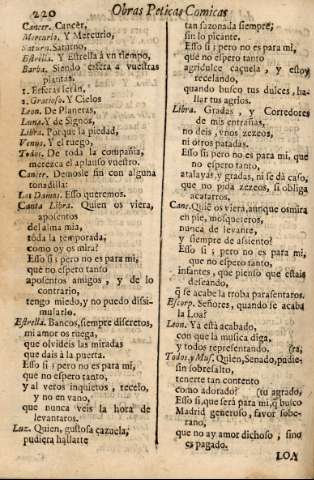 220 Obras Peticas Comicas
Cancer. Cancer,
Mercurio. Y Mercurio,
Saturn. Saturno,
Estrella. Y Estrella à vn tiempo,
Barba. Siendo esfera à vuestras
plantas.
1. Esferas serán,
2. Gracioso. Y Cielos
Leon. De Planetas,
Luna. Y de Signos,
Libra. Porque la piedad,
Venus. Y el ruego,
Todos. De toda la compañia,
merezca el aplauso vuestro.
Cancer. Demosle fin con alguna
tonadilla:
Las Damas. Esso queremos.
Canta Libra. Quien os viera,
aposentos
del alma mia,
toda la temporada,
como oy os mira?
Esso si; pero no es para mi,
que no espero tanto
aposentos amigos, y de lo
contrario,
tengo miedo, y no puedo dissi-
mularlo.
Estrella. Bancos, siempre discretos,
mi amor os ruega,
que olvideis las miradas
que dais à la puerta.
Esso si; pero no es para mi,
que no espero tanto,
y al veros inquietos, recelo,
y no en vano,
que nunca veis la hora de
levantaros.
Luz. Quien, gustosa cazuela,
pudiera hallarte
tan sazonada siempre,
sin lo picante.
Esso si; pero no es para mi,
que no espero tanto
agridulce caçuela, y estoy
recelando,
quando busco tus dulces, ha-
llar tus agrios.
Libra. Gradas, y Corredores
de mis entrañas,
no deis, vnos zezeos,
ni otros patadas.
Esso si; pero no es para mi, que
no espero tanto,
atalayas, y gradas, ni se dà caso,
que no pida zezeos, si obliga
acatarros.
Canc. Quiè os viera, aunque os mira
en pie, mosqueteros,
nunca de levante,
y siempre de assiento?
Esso si; pero no es para mi,
que no espero tanto,
infantes, que pienso que estais
deseando,
q̃ se acabe la troba para sentaros.
Escorp. Señores, quando se acaba
la Loa?
Leon. Ya està acabado,
con que la musica diga,
y todos representando. (ra,
Todos, y Mus. Quien, Senado, pudie-
sin sobresalto,
tenerte tan contento
como adorado? (tu agrado,
Esso si, que serà para mi, q̃ busco
Madrid generoso, favor sobe-
rano,
que no ay amor dichoso, sino
es pagado.
LOA